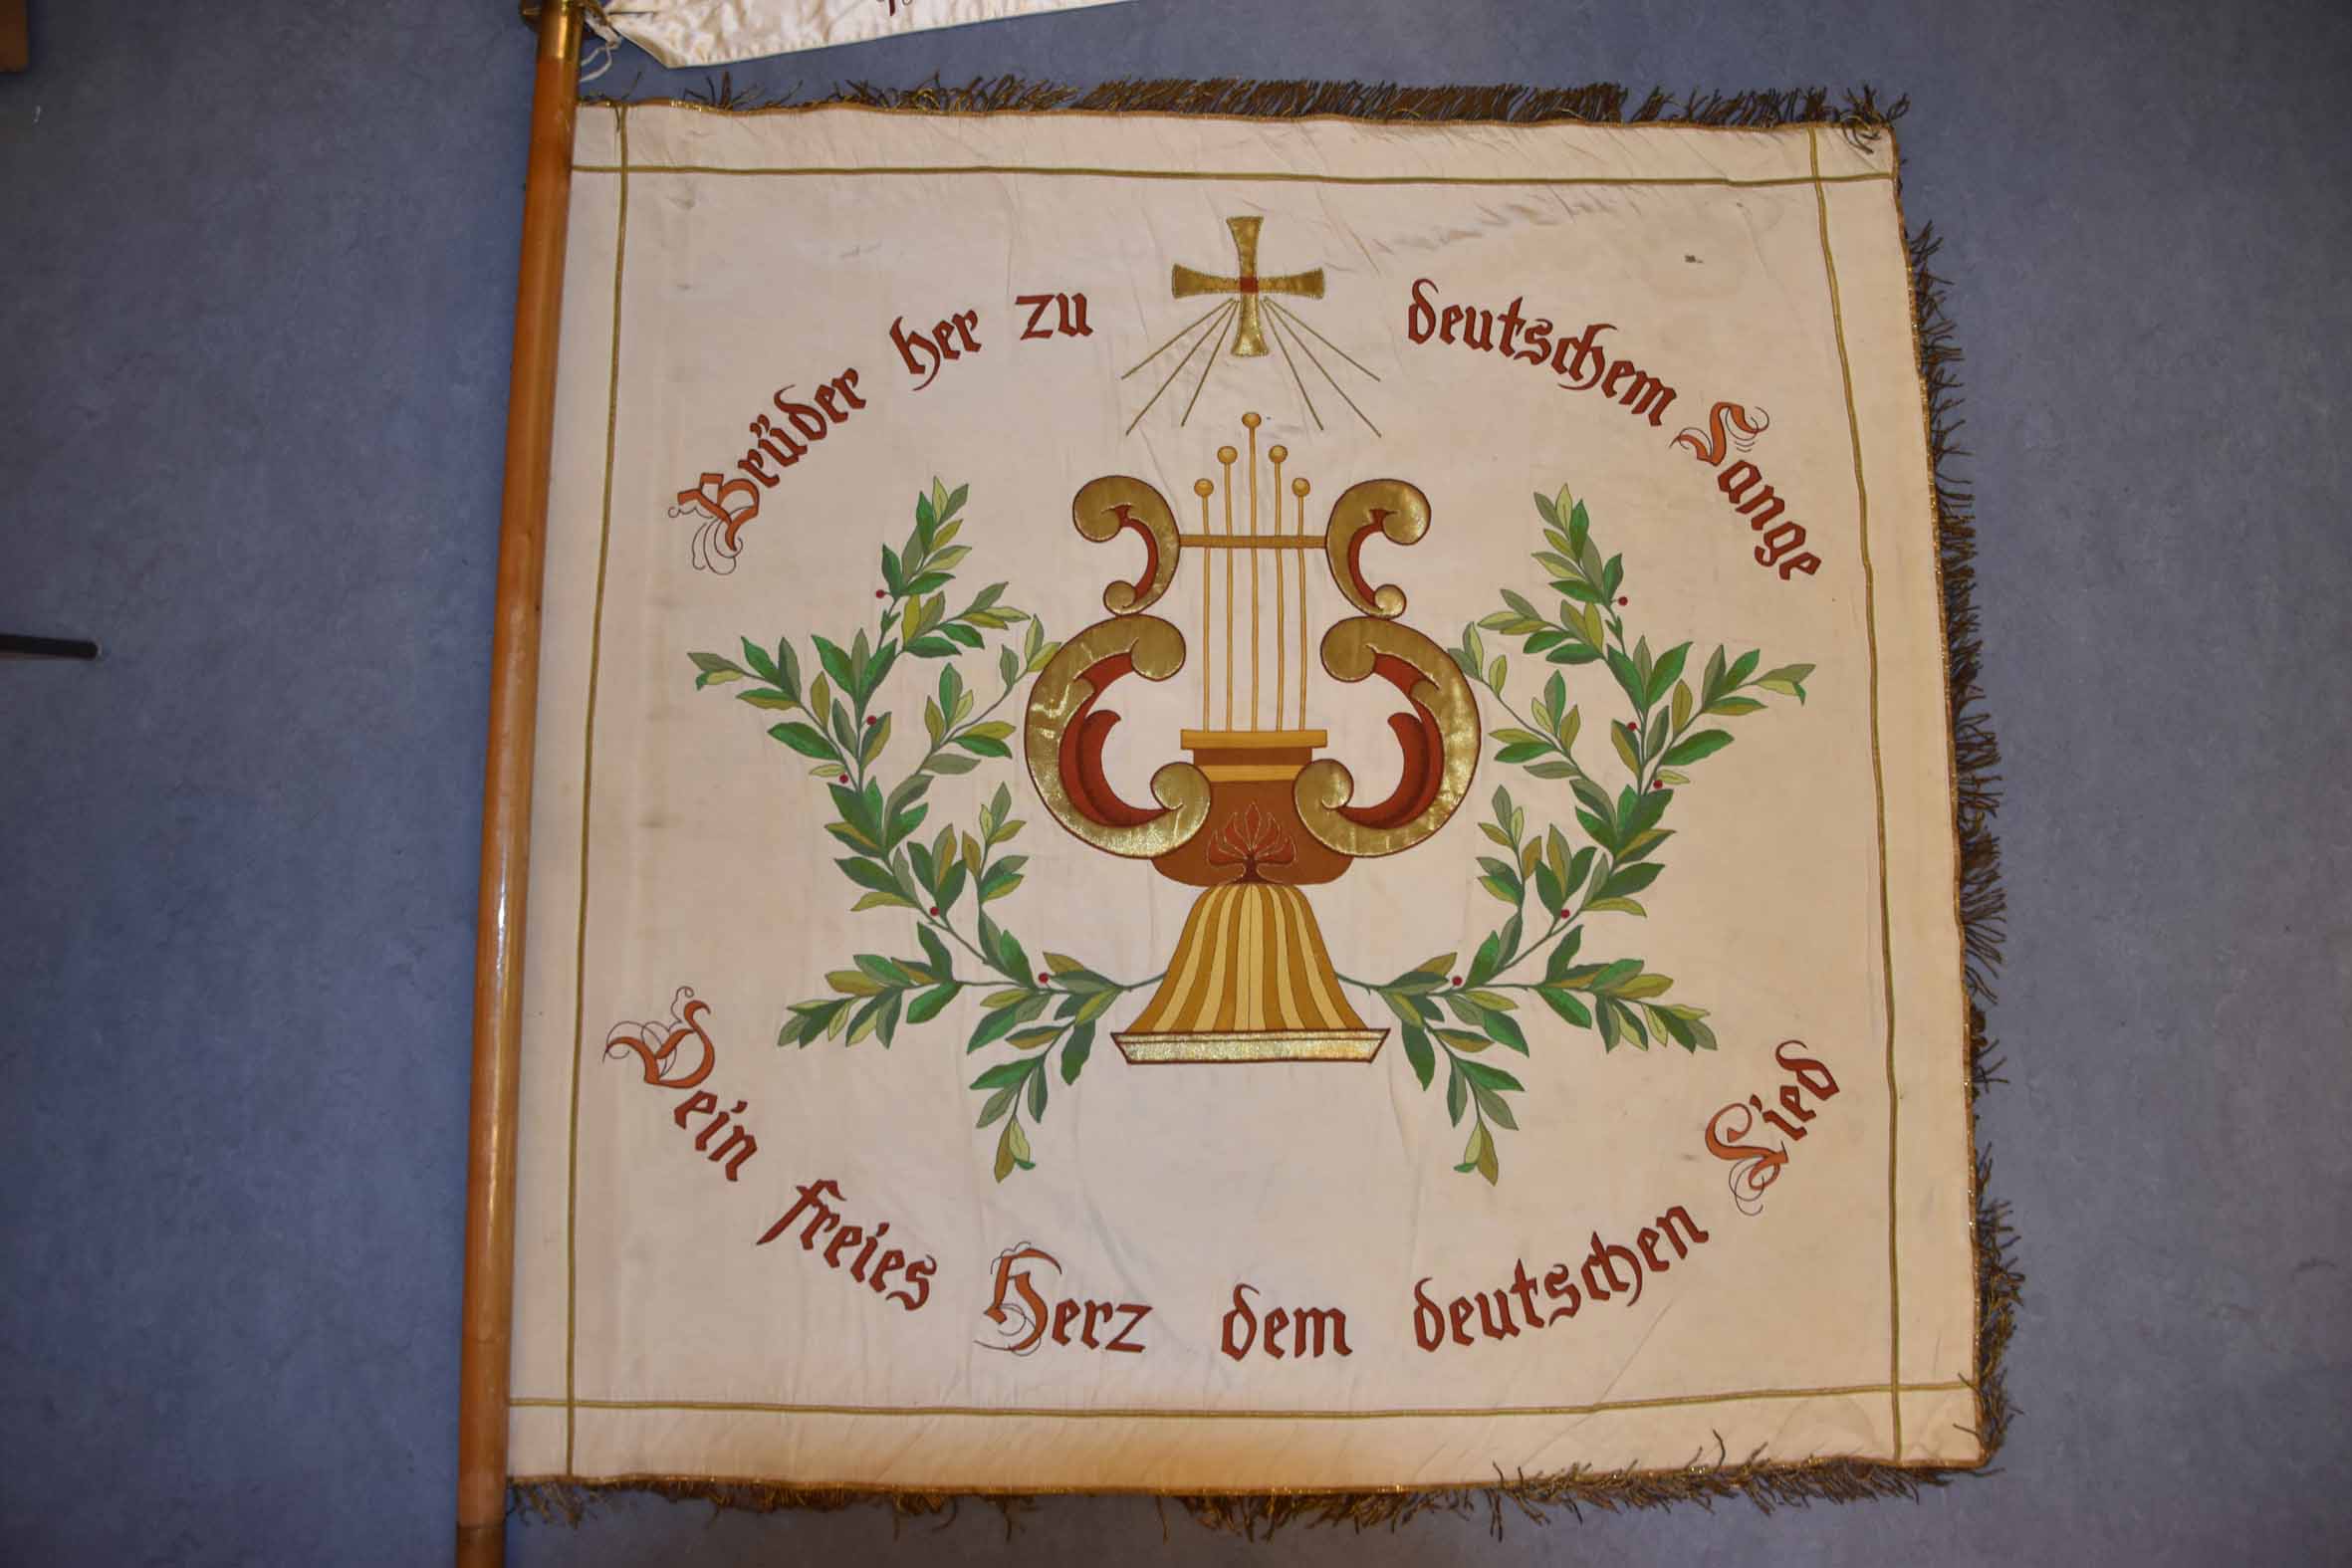 Brüder her zu deutschem Sange
Dein freies Herz dem deutschen Lied